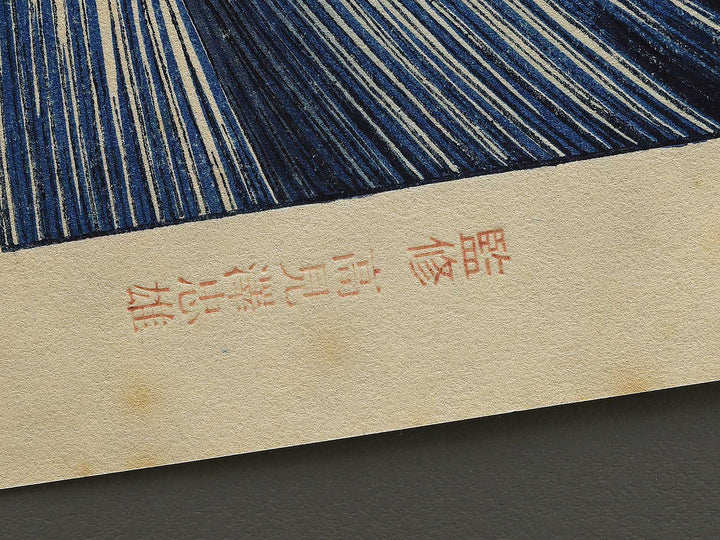 監修 高見澤忠雄